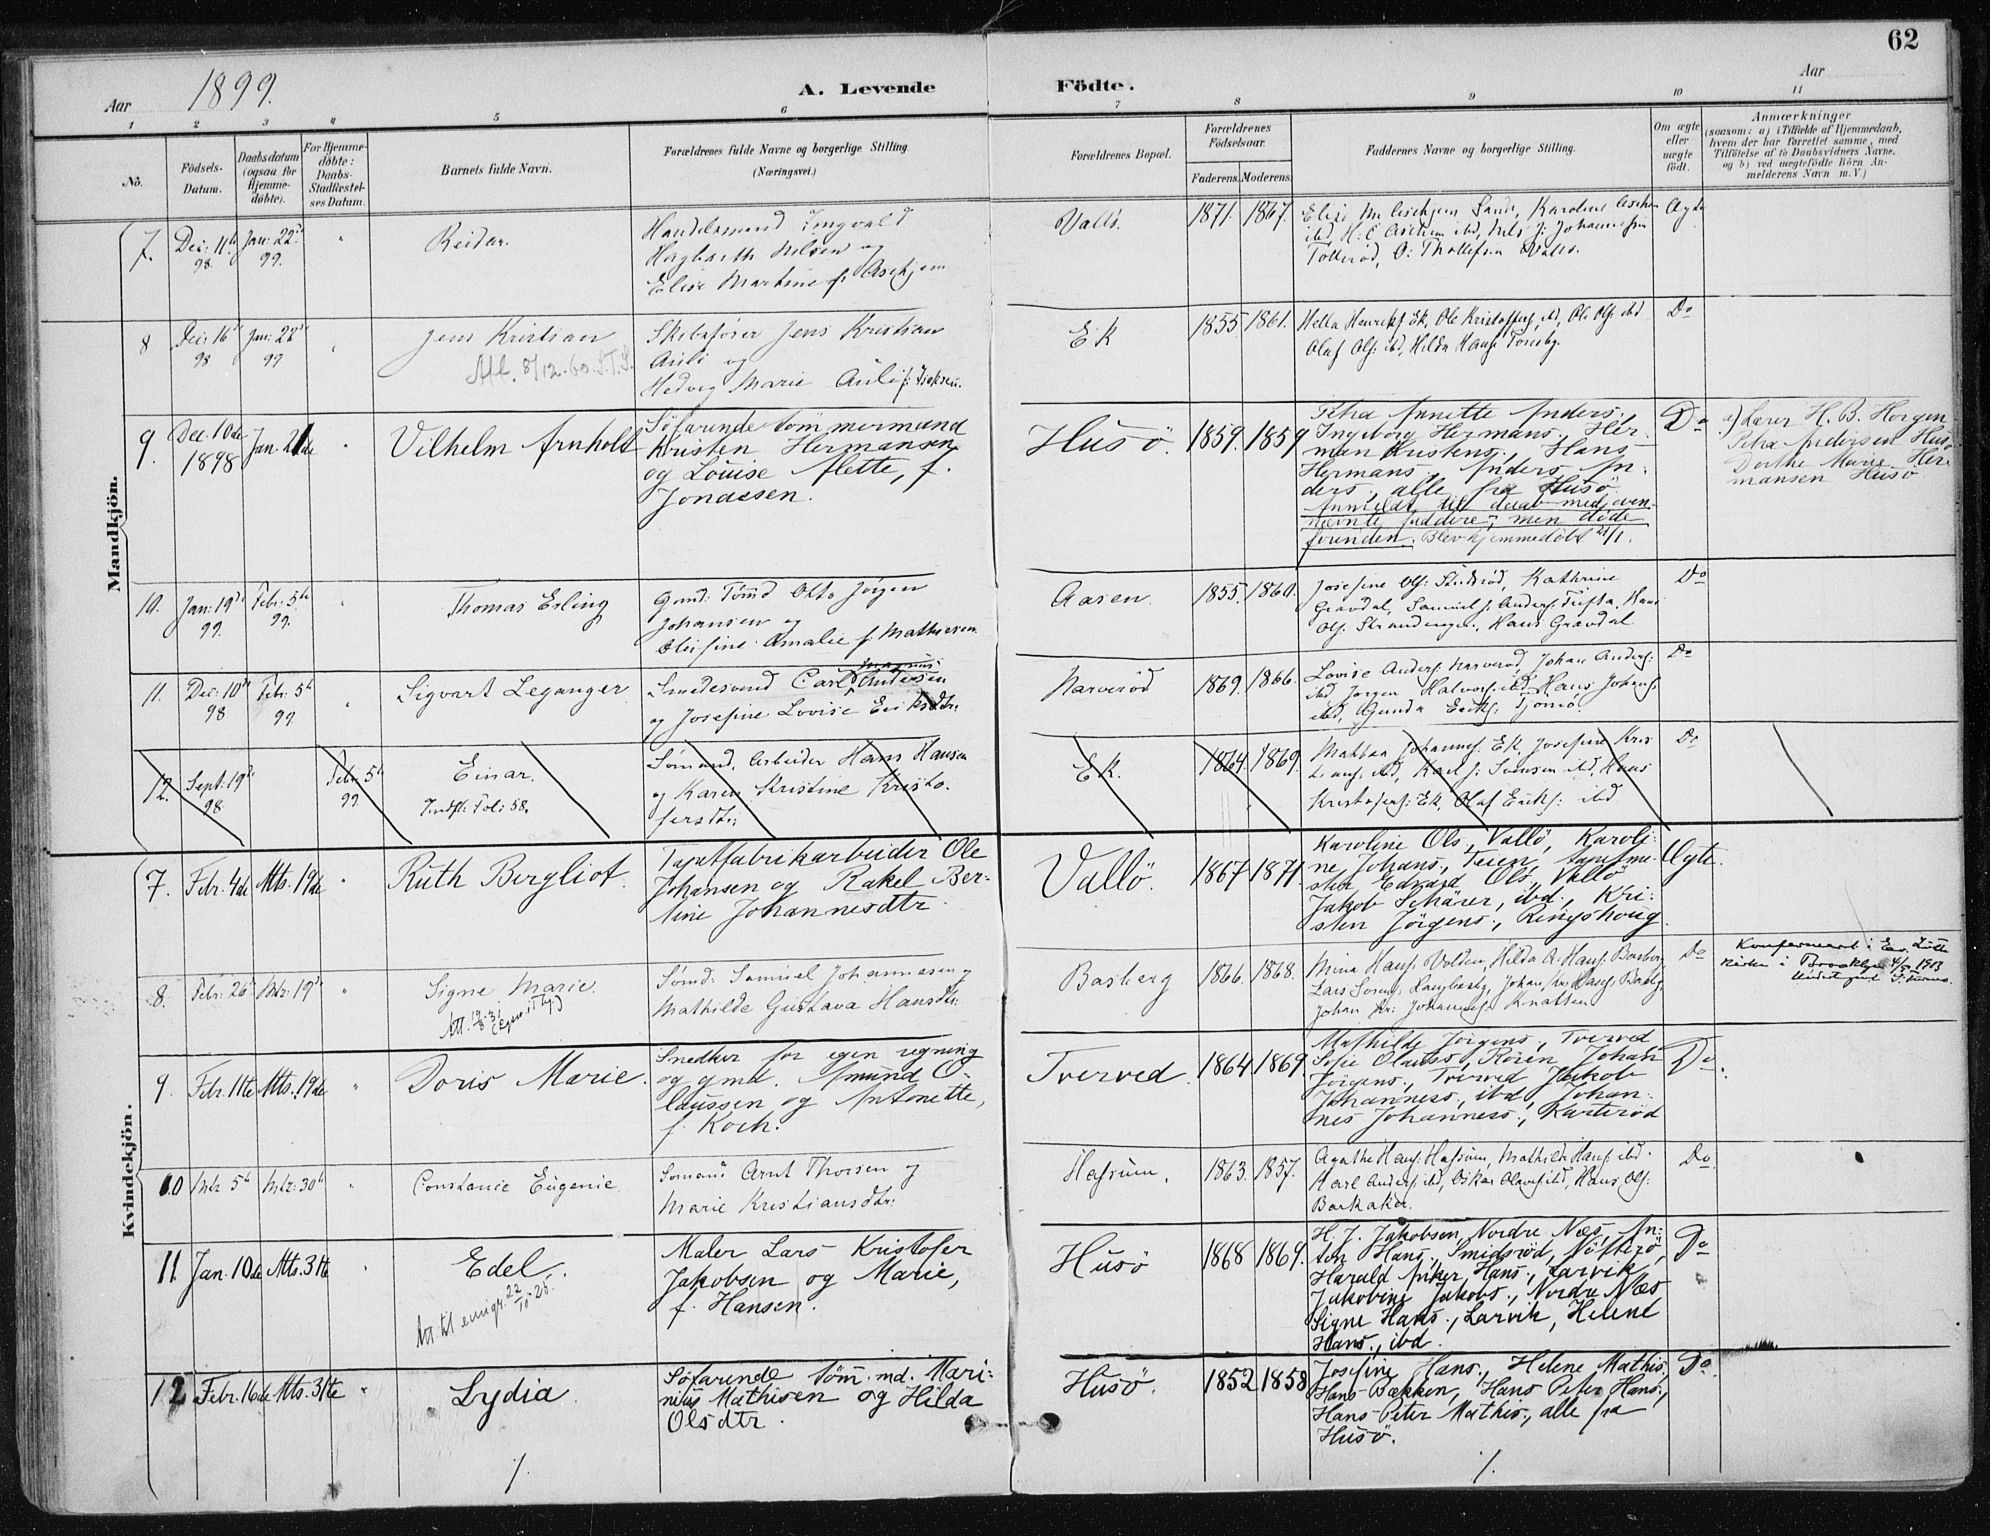 62
Aar 1899.
A. Levende Födte.
Aar
1 2 3 4 5 6 7 8 9 10 11
No.
Födsels-
Datum.
Daabsdatum
(ogsaa for
Hjemme-
döbte).
For Hjemme-
döbte:
Daabs-
Stadfæstel-
ses Datum.
Barnets fulde Navn.
Forældrenes fulde Navne og borgerlige Stilling.
(Næringsvei.)
Forældrenes Bopæl.
Forældrenes
Födselsaar.
Faderens. Moderens.
Faddernes Navne og borgerlige Stilling.
Om ægte
eller
uægte
födt.
Anmærkninger
(saasom: a) i Tilfælde af Hjemmedaab,
hvem der har forrettet samme, med
Tilföielse af to Daabsvidners Navne.
og b) ved uægtefödte Börn An-
melderens Navn m. V.)
Mandkjön.
7.
Dec: 11te
98.
Jan: 22de
99.
"
Reidar.
Handelsmand Ingvald
Hagbarth Nilsen og
Elise Martine f. Aschjem
Vallö.
1871. 1867.
Sande, Karoline
ibd, H. C. Aschjem ibd, Nils J. Johannessen
Tollerød, O. Thollefsen Vallö.
Ægte
8
Dec: 16de
98.
Jan: 22de
99
"
Jens Kristian
Att. 8/12.60. S.T.S.
Skibsfører Jens Kristian
Auli og
Hedvig Marie Auli f.
Ek
1855. 1861.
Hella Henriks. Ek, Ole Kristoffers. ibd, Ole Ols. ibd
Olaf Ols. ibd, Hilda Hans.
Do
9.
Dec. 10de
1898
Jan. 21de
"
Vilhelm Arnholdt
Söfarende tömmermand
Kristen Hermansen
og Louise Alette, f.
Jonassen.
Husö.
1859. 1859
Petra Annette Anders.,
Ingeborg Hermans., Her-
man Kristens., Hans
Hermans., Anders An-
ders., alle fra Husö.
Anmeldt til daab med oven-
nævnte faddere, men döde
forinden. Blev hjemmedöbt 21/1.
Do
a) Lærer H. B. Horgen
Petra Andersen Husö
Dorthe Marie Her-
mansen Husö
10.
Jan: 19de
99.
Febr. 5te
99.
"
Thomas Erling
Gmd: Tømd Otto Jørgen
Johansen og
Amalie f. Mathisen
Aasen.
1855. 1860.
Josefine Ols. Kathrine
Gravdal, Samuel J. Anders. Tufte, Hans
Ols. Hans Gravdal
Do
11.
Dec: 10de
98
Febr. 5te
99.
"
Sigvart Leganger
Smedesvend Carl Marius Andersen
og Josefine Lovise Eriksdtr.
Narverød
1869. 1866.
Lovise Anders. Narverød, Johan Anders.
ibd, Jørgen Halvors. ibd, Hans Johans.
ibd, Gunda Eriks. Tjømø.
Do
12.
Sept: 19de
98.
Febr: 5te
99.
Einar.
Indf. Foli 58.
Sømand, Arbeider Hans Hansen
og Karen Kristine Kristo-
fersdtr.
Ek.
1864. 1869.
Mathea Johannes. Ek, Josefine Kris-
ibd, Karl J. Svensen ibd, Hans
Kristofers. Ek, Olaf Eriks. ibd
Do
Kvindekjön.
7.
Febr. 4de
Mts. 19de
"
Ruth Bergliot.
Tapetfabrikarbeider Ole
Johansen og Rakel Ber-
tine Johannesdtr.
Vallö.
1867 1871
Karoline Ols., Vallö, Karoli-
ne Johans., Teien, tapetme-
ster Edvard Ols., Vallö
Jakob Schärer, ibd., Kri-
sten Jörgens., Ringshoug.
Ægte.
8.
Febr: 26de
Mts: 19de
"
Signe Marie
Sømd: Samuel Johannesen og
Mathilde Gustava Hansdtr.
Basberg
1866. 1868.
Mina Hans. Volden, Hilda A. Hans. Basberg
Lars Sørens.
Johan Kr: Johannes. Knatten
Do
Konfirmeret i Ev. Luth
Kirke i Brooklyn 4/5 1913
9
Febr. 11te
Mts. 19de
"
Doris Marie.
Snedker for egen regning
og gmd. Amund O-
laussen og Antonette,
f. Koch.
Tverved.
1864 1869.
Mathilde Jörgens., Tverved
Sofie Olauss., Roren, Johan
Jörgens., Tverved, Jakob
Johanness., ibd, Johan-
nes Johanness., Karterød
Do.
10
Mts 5te
Mts: 30te
"
Constance Eugenie
Sømand Arnt Thorsen og
Marie Kristiansdtr.
1863. 1857.
Agathe Hans. Mathilde Hans. ibd.
Karl Anders. ibd, Oskar Olavs. ibd, Hans Ols.
Barkaker.
Do
11.
Jan. 10de
Mts. 31te
"
Edel.
Att til emigr. 22/10-25.
Maler Lars Kristofer
Jakobsen og Marie,
f. Hansen.
Husö
1868 1869.
H. J. Jakobsen, Nordre Næs, An-
ton Hans., Smidsröd, Nötterö,
Harald Anker Hans., Larvik,
Jakobine Jakobs., Nordre Næs
Signe Hans., Larvik, Helene
Hans., ibd.
Do
12
Febr. 16de
Mts. 31te
"
Lydia
Söfarende töm.md. Mari-
nius Mathisen og Hilda
Olsdtr.
Husö.
1852 1858
Josefine Hans., Helene Mathis.,
Hans Bækken, Hans Peter Hans.,
Hans Peter Mathis., alle fra
Husö.
Do.